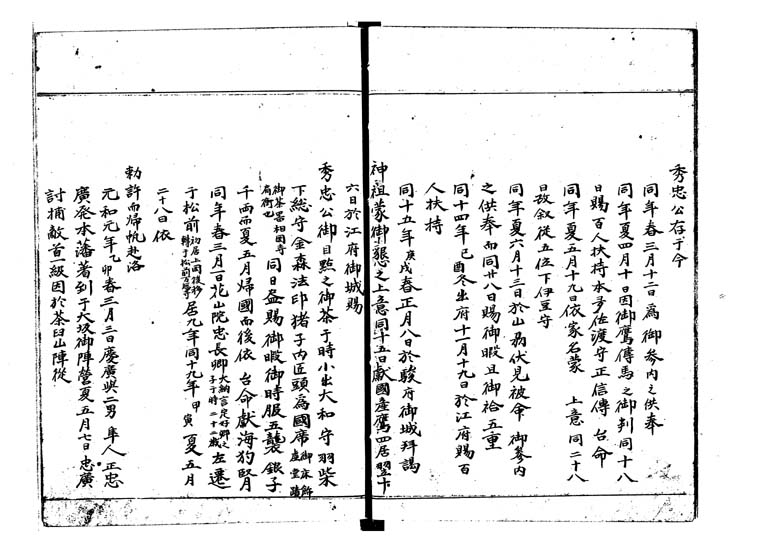 秀忠公存于今
同年春三月十二日為　御參内之供奉
同年夏四月十日因御鷹傳馬之御判同十八
日賜百人扶持本多佐渡守正信傳　台命
同年夏五月十九日依家名蒙　上意同二十八
日敍從五位下伊豆守
同年夏六月十三日於山城伏見被命　御參内
之供奉而同廿八日賜御暇且御袷五重
同十四年己酉冬出府十一月十九日於江府賜百
人扶持
同十五年庚戌春正月八日於駿府御城拜謁
神祖蒙御懇之上意同十五日獻國産鷹四居翌廿
六日於江府御城賜
秀忠公御目點之御茶于時小出大和守羽柴
下総守金森法印猪子内匠頭為國席御床餝虚堂蹟
御茶器相國寺有衝也同日盃賜御暇御時服五襲銀子
千両而夏五月帰國而後依　台命獻海狗腎
同年春三月一日花山院忠長卿大納言定好卿之子于時二十二歳左遷
于松前初居上國後移轉于松前万福寺居九年同十九年甲寅夏五月
二十八日依
勅許而帰帆赴洛
元和元年乙卯春三月三日慶廣與二男隼人正忠
廣発本藩著到于大坂御陣營夏五月七日忠廣
討捕敵首一級因於茶臼山陣從